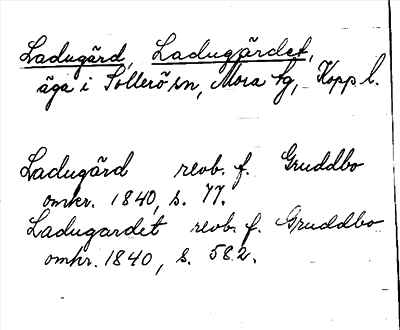 Ladugård, Ladugårdet,
äga i Sollerö sn, Mora tg, Kopp l.
Ladugård revb. f. Gruddbo
omkr. 1840, s. 77.
Ladugardet revb. f. Gruddbo
omkr. 1840, s. 582.